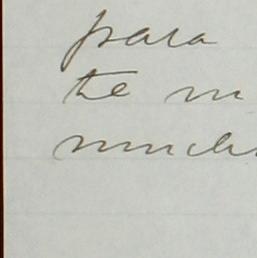 para
the m
much